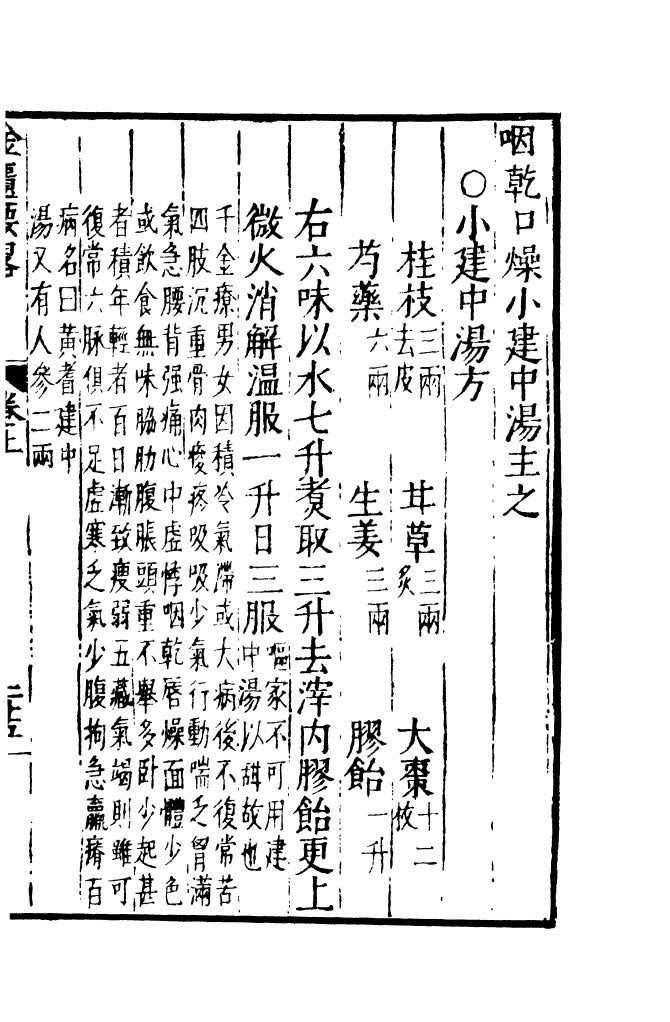 咽乾口燥小建中湯主之
○小建中湯方
桂枝三兩去皮 甘草三兩炙 大棗十二枚
芍藥六兩 生姜三兩 膠飴一升
右六味以水七升煑取三升去滓内膠飴更上
微火消解温服一升日三服嘔家不可用建中湯以甜故也
千金療男女因積冷氣滯或大病後不復常苦
四肢沉重骨肉痠疼吸吸少氣行動喘乏胷滿
氣急腰背强痛心中虛悸咽乾唇燥面體少色
或飲食無味脇肋腹脹頭重不舉多卧少起甚
者積年輕者百日漸致瘦弱五藏氣竭則難可
復常六脉俱不足虛寒乏氣少腹拘急羸瘠百
病名曰黃耆建中
湯又有人參二兩
金匱要畧 卷上 二十五